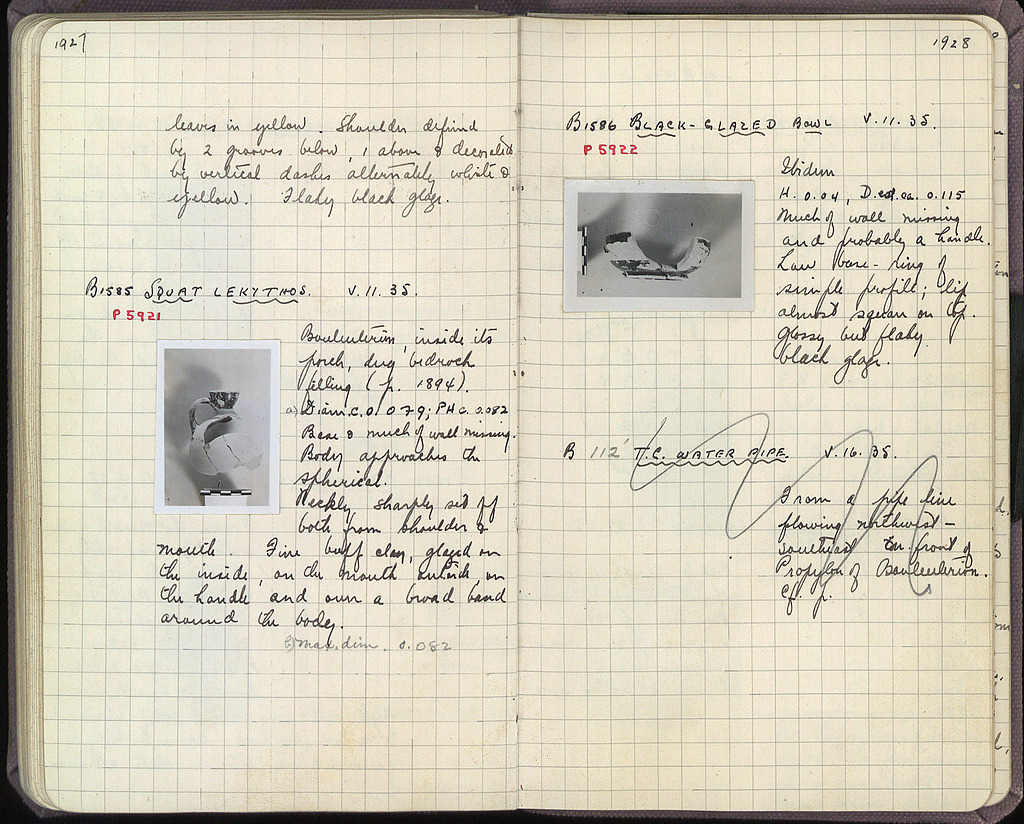 1927
leaves in yellow. Shoulder defined
by 2 grooves below, 1 above & decorated
by vertical dashes alternately white &
yellow. Flaky black glaze.
B1585 SQUAT LEKYTHOS. V.11.35.
P 5921
Bouleuterion, inside its
porch, dug bedrock
filling (p. 1894).
a) Diam. c. 0.079; PH c. 0.082
Base & much of wall missing.
Body approaches the
spherical.
Neckly sharply set off
both from shoulder &
mouth. Fine buff clay, glazed on
the inside, on the mouth outside, on
the handle and over a broad band
around the body.
b) Max. dim. 0.082
1928
B1586 BLACK-GLAZED BOWL V.11.35.
P 5922
Ibidem
H. 0.04, D. ca. 0.115
Much of wall missing
and probably a handle.
Low base-ring of
simple profile; lip
almost square on top.
Glossy but flaky
black glaze.
B 112' T.C. WATER PIPE. V.16.35.
From a pipe line
flowing northwest-
southeast in front of
Propylon of Bouleuterion.
Cf. p.